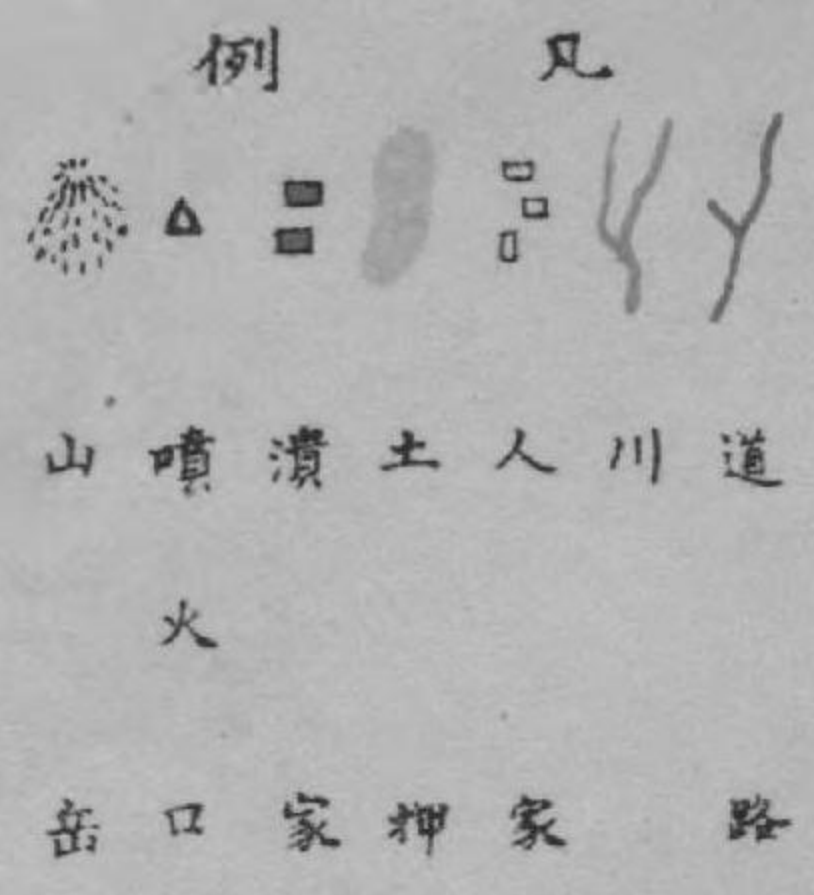 凡例
道路
川
人家
土押
潰家
噴火口
山岳